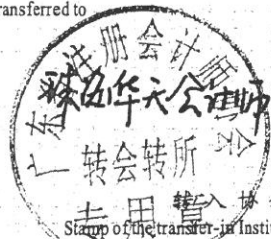 ransferred to
广东省注册会计师协会
转会转所
专用章
转入协
Stamp of the transfer-in Insti